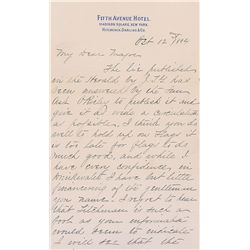 FIFTH AVENUE HOTEL
MADISON SQUARE, NEW YORK.
HITCHCOCK, DARLING & CO.
Oct 12th 1884
My Dear Mayor
The lie published
in the Herald by J.T.H. has
been answered by the
to publish it and
give it as wide a circulation
as possible. I think you do
well to hold up on flags it
is too late for flags to do
much good, and while I
have every confidence in
I have but little
in the gentleman
you name. I regret to hear
that Fitchman is once a
fool as your information
would seem to indicate
I will see that the